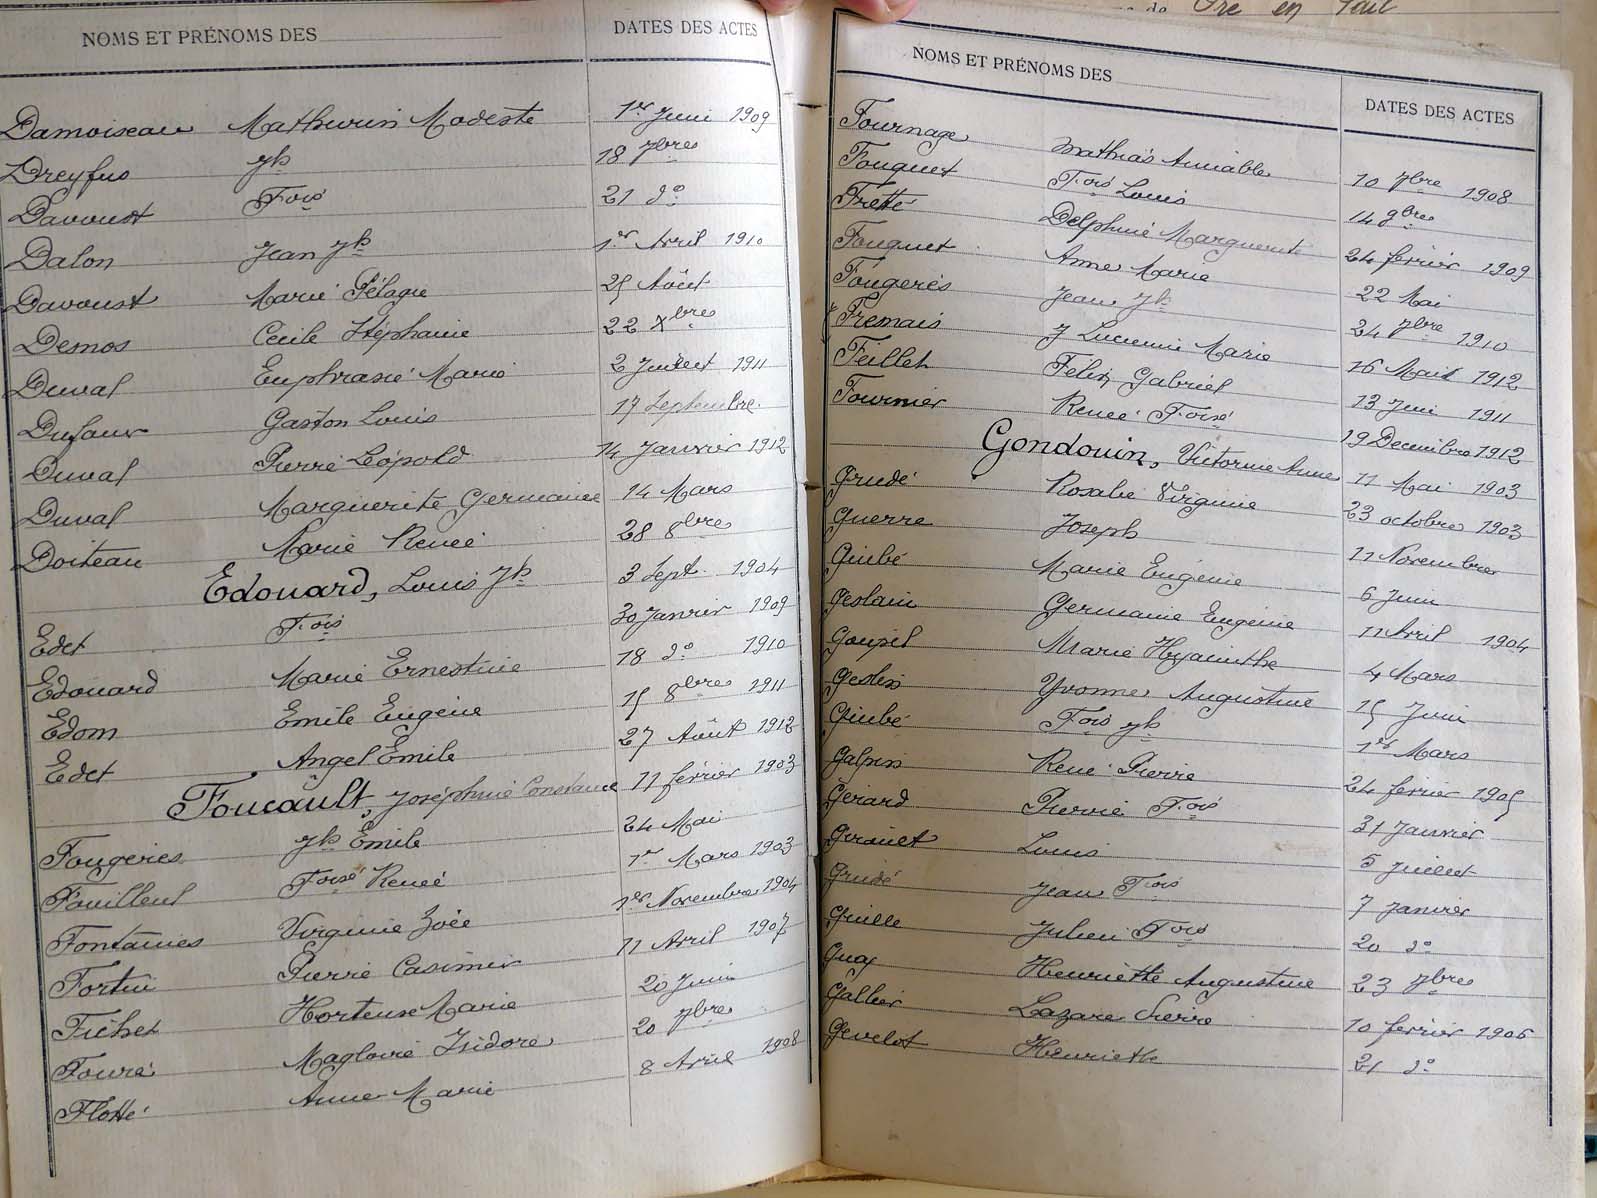 NOMS ET PRÉNOMS DES DATES DES ACTES
Damoiseau Mathurin Modeste 1er Juin 1909
Dreyfus Jh 18 7bres
Davoust Fois 21 do
Dalon Jean Jh 1er Avril 1910
Davoust Marie Pélagie 25 Août
Demos Cecile Stéphanie 22 Xbres
Duval Euphrasie Marie 2 Juillet 1911
Dufour Gaston Louis 17 Septembre
Duval Pierre Léopold 14 Janvier 1912
Duval Marguerite Germaine 14 Mars
Doiteau Marie Renée 28 8bres
Edouard, Louis Jh 3 Sept. 1904
Edet Fois 30 Janvier 1909
Edouard Marie Ernestine 18 do 1910
Edom Emile Eugène 15 8bres 1911
Edet Angel Emile 27 Août 1912
Foucault, Joséphine Constance 11 février 1903
Fougères Jh Emile 24 Mai
Fouilleul Foise Renée 1er Mars 1903
Fontaines Virginie Zoée 1er Novembre 1904
Fortin Pierre Casimir 11 Avril 1907
Fichet Hortense Marie 20 Juin
Fouré Magloire Isidore 20 7bres
Flotté Anne Marie 8 Avril 1908
de Pré en Pail
NOMS ET PRÉNOMS DES DATES DES ACTES
Fournage Mathias Aimable 10 7bre 1908
Fouquet Fois Louis 14 9bres
Fretté Delphine Marguerite 24 février 1909
Fouquet Anne Marie 22 Mai
Fougerès Jean Jh 24 7bre 1910
Fremais J Lucienne Marie 16 Mait 1912
Feillet Felix Gabriel 13 Juin 1911
Fournier Renée Foise 19 Decembre 1912
Gondouin, Victorine Anne 11 Mai 1903
Grudé Rosalie Virginie 23 octobre 1903
Guerre Joseph 11 Novembre
Guibé Marie Eugénie 6 Juin
Geslain Germaine Eugénie 11 Avril 1904
Goupil Marie Hyacinthe 4 Mars
Geslin Yvonne Augustine 15 Juin
Guibé Fois Jh 1er Mars
Galpin René Pierre 24 février 1905
Gérard Pierre Fois 31 Janvier
Grouet Louis 5 Juillet
Grudé Jean Fois 7 Janvier
Guille Julien Fois 20 do
Guay Henriette Augustine 23 7bres
Gallier Lazare Pierre 10 février 1906
Gevelot Henriette 21 do